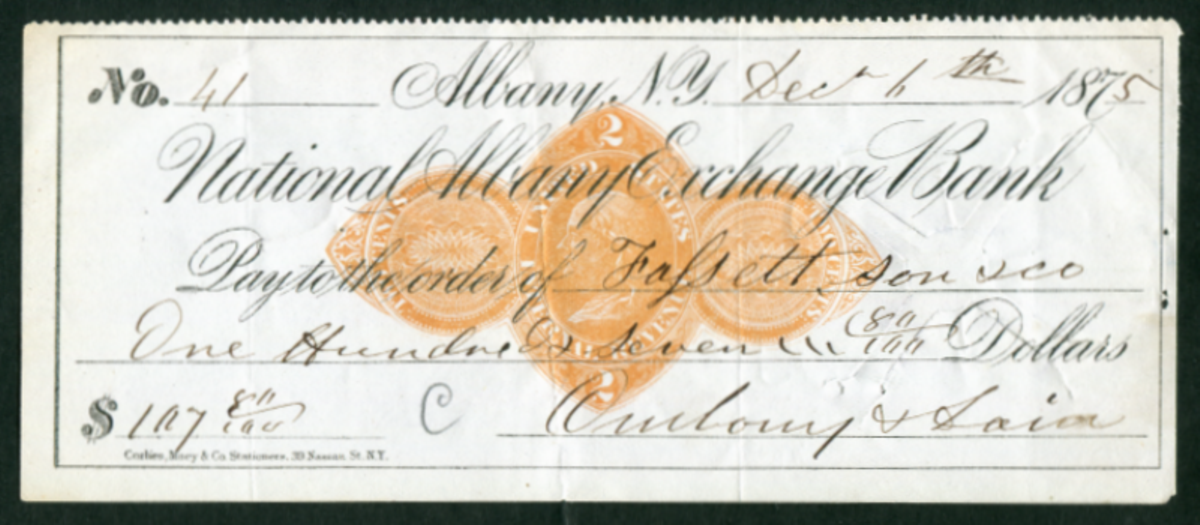 No. 41 Albany, N.Y. Dec 6th 1875
National Albany Exchange Bank
Pay to the order of Fassett Son & Co
One Hundred & Seven 80/100 Dollars
$ 107 80/100 C
Corlies, Macy & Co Stationers, 39 Nassau St. N.Y.
2
2